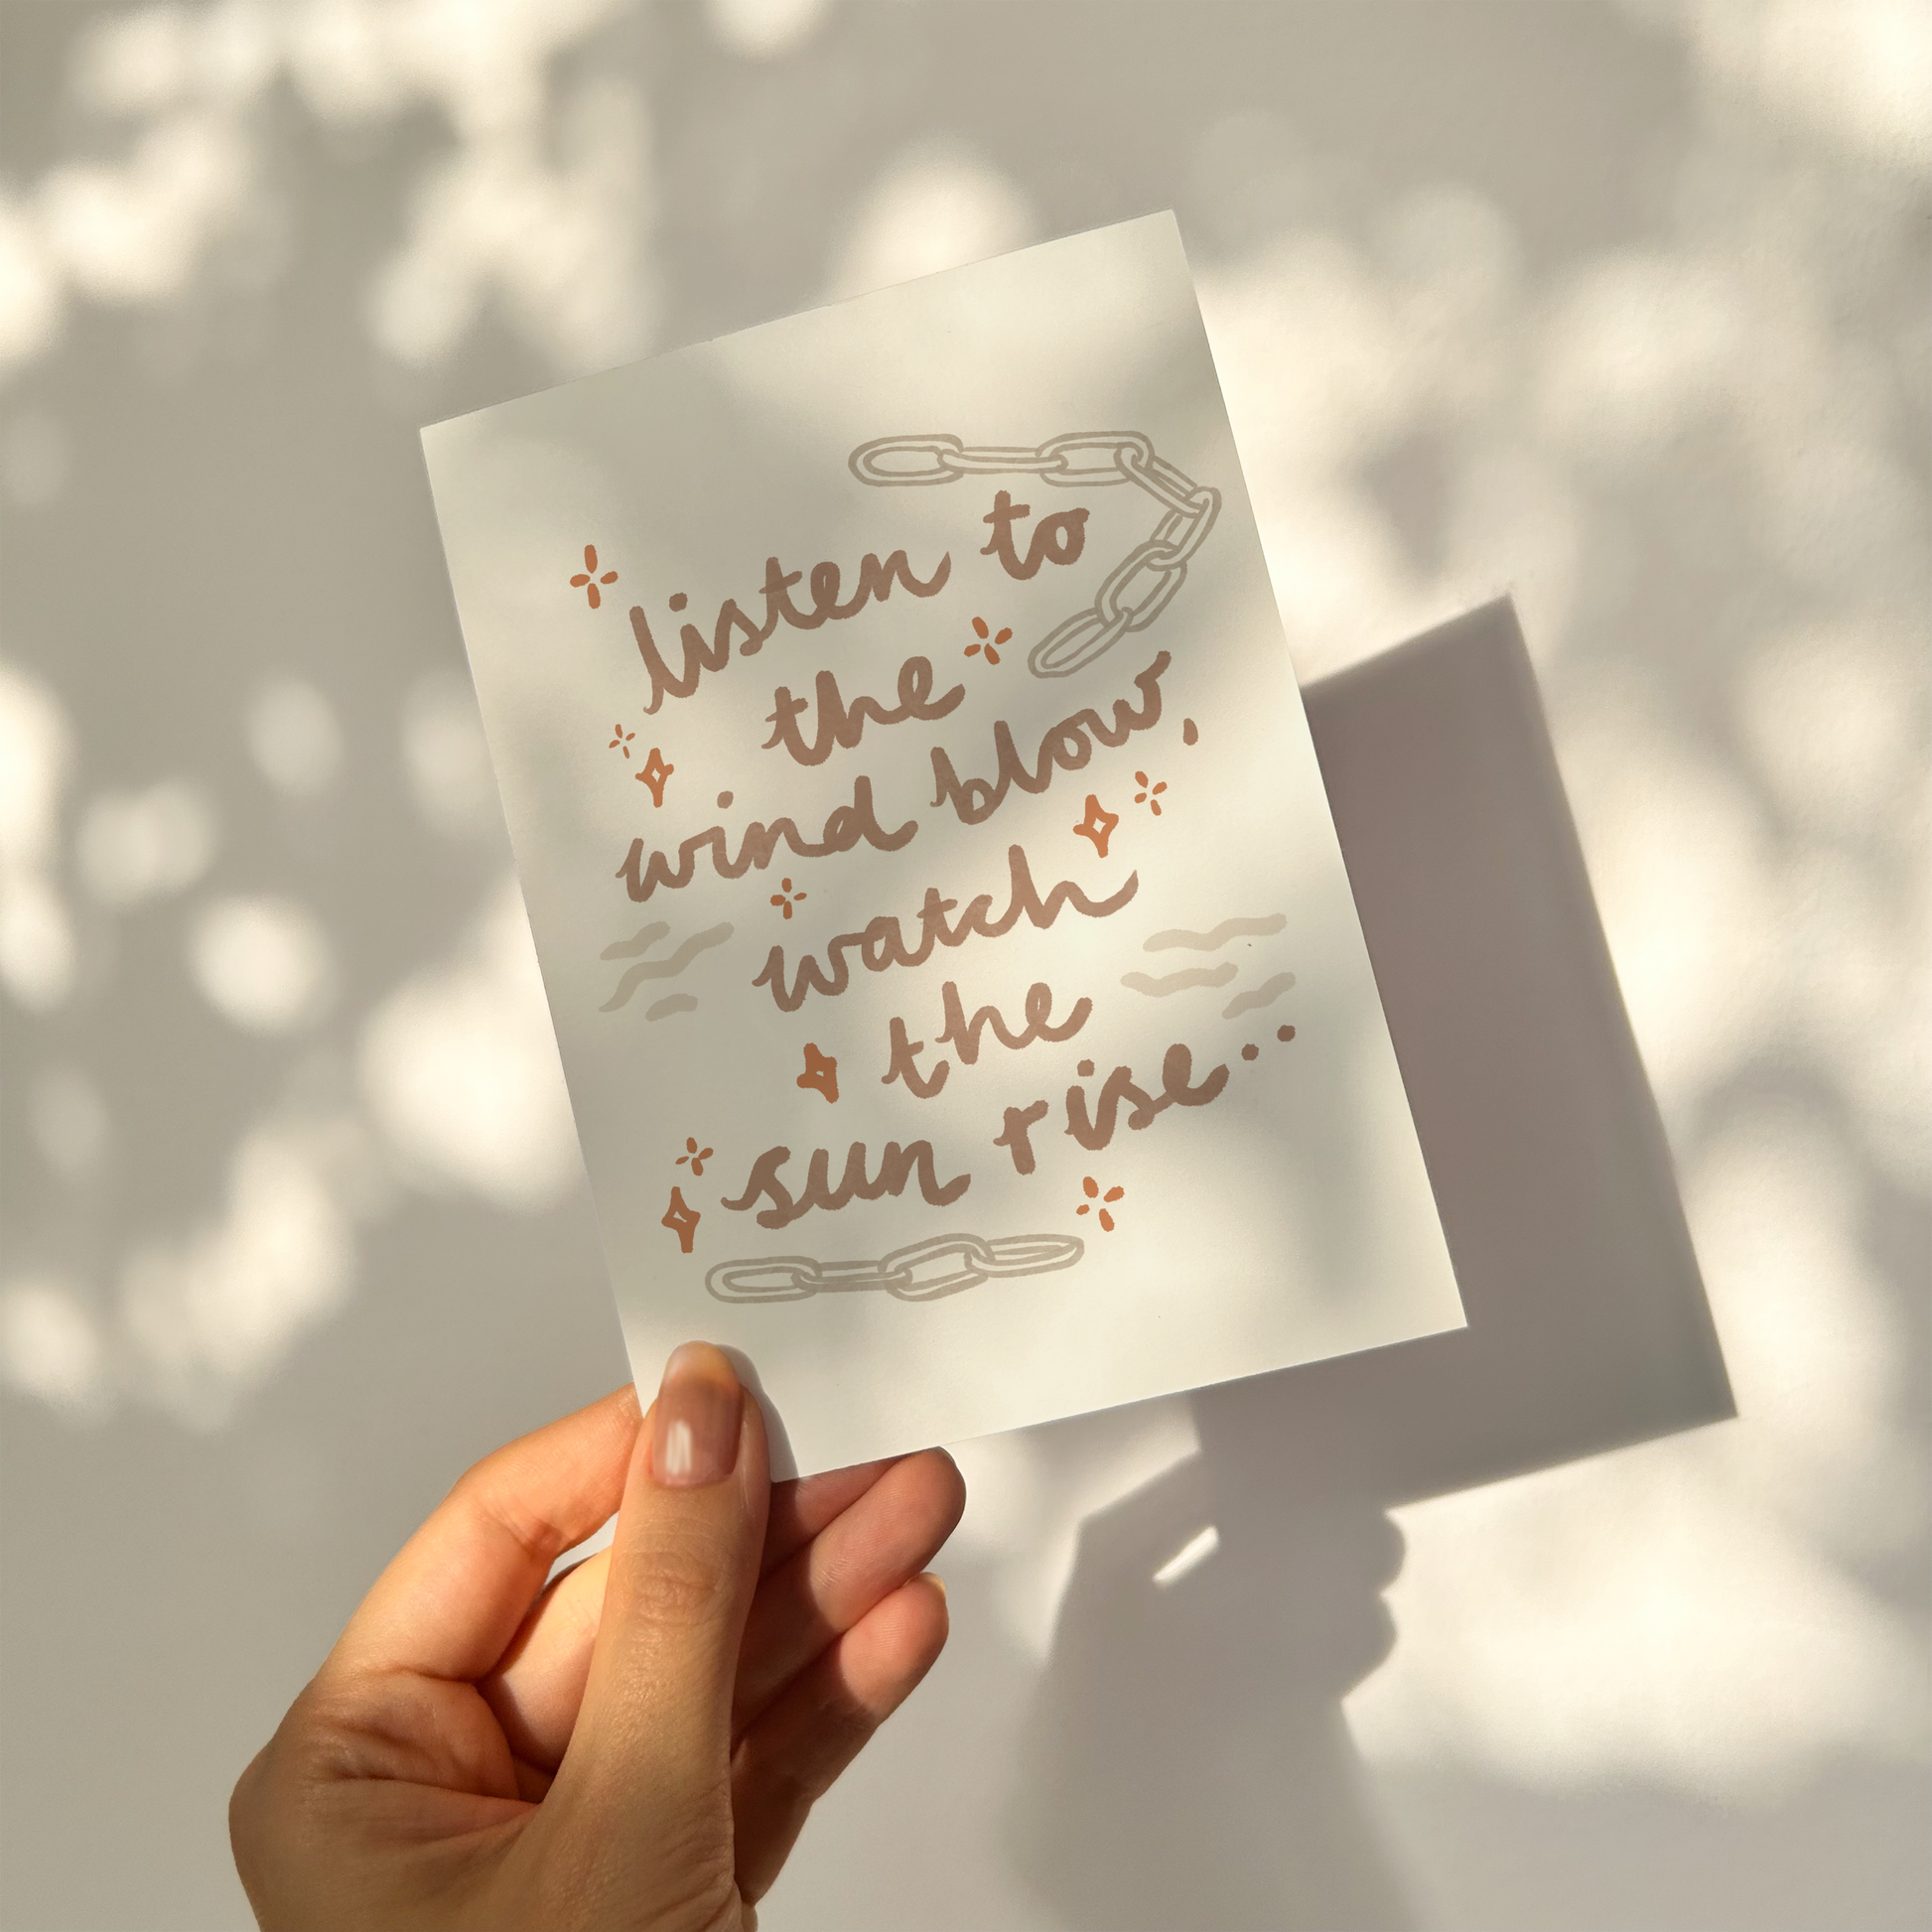 listen to
the
wind blow,
watch
the
sun rise..